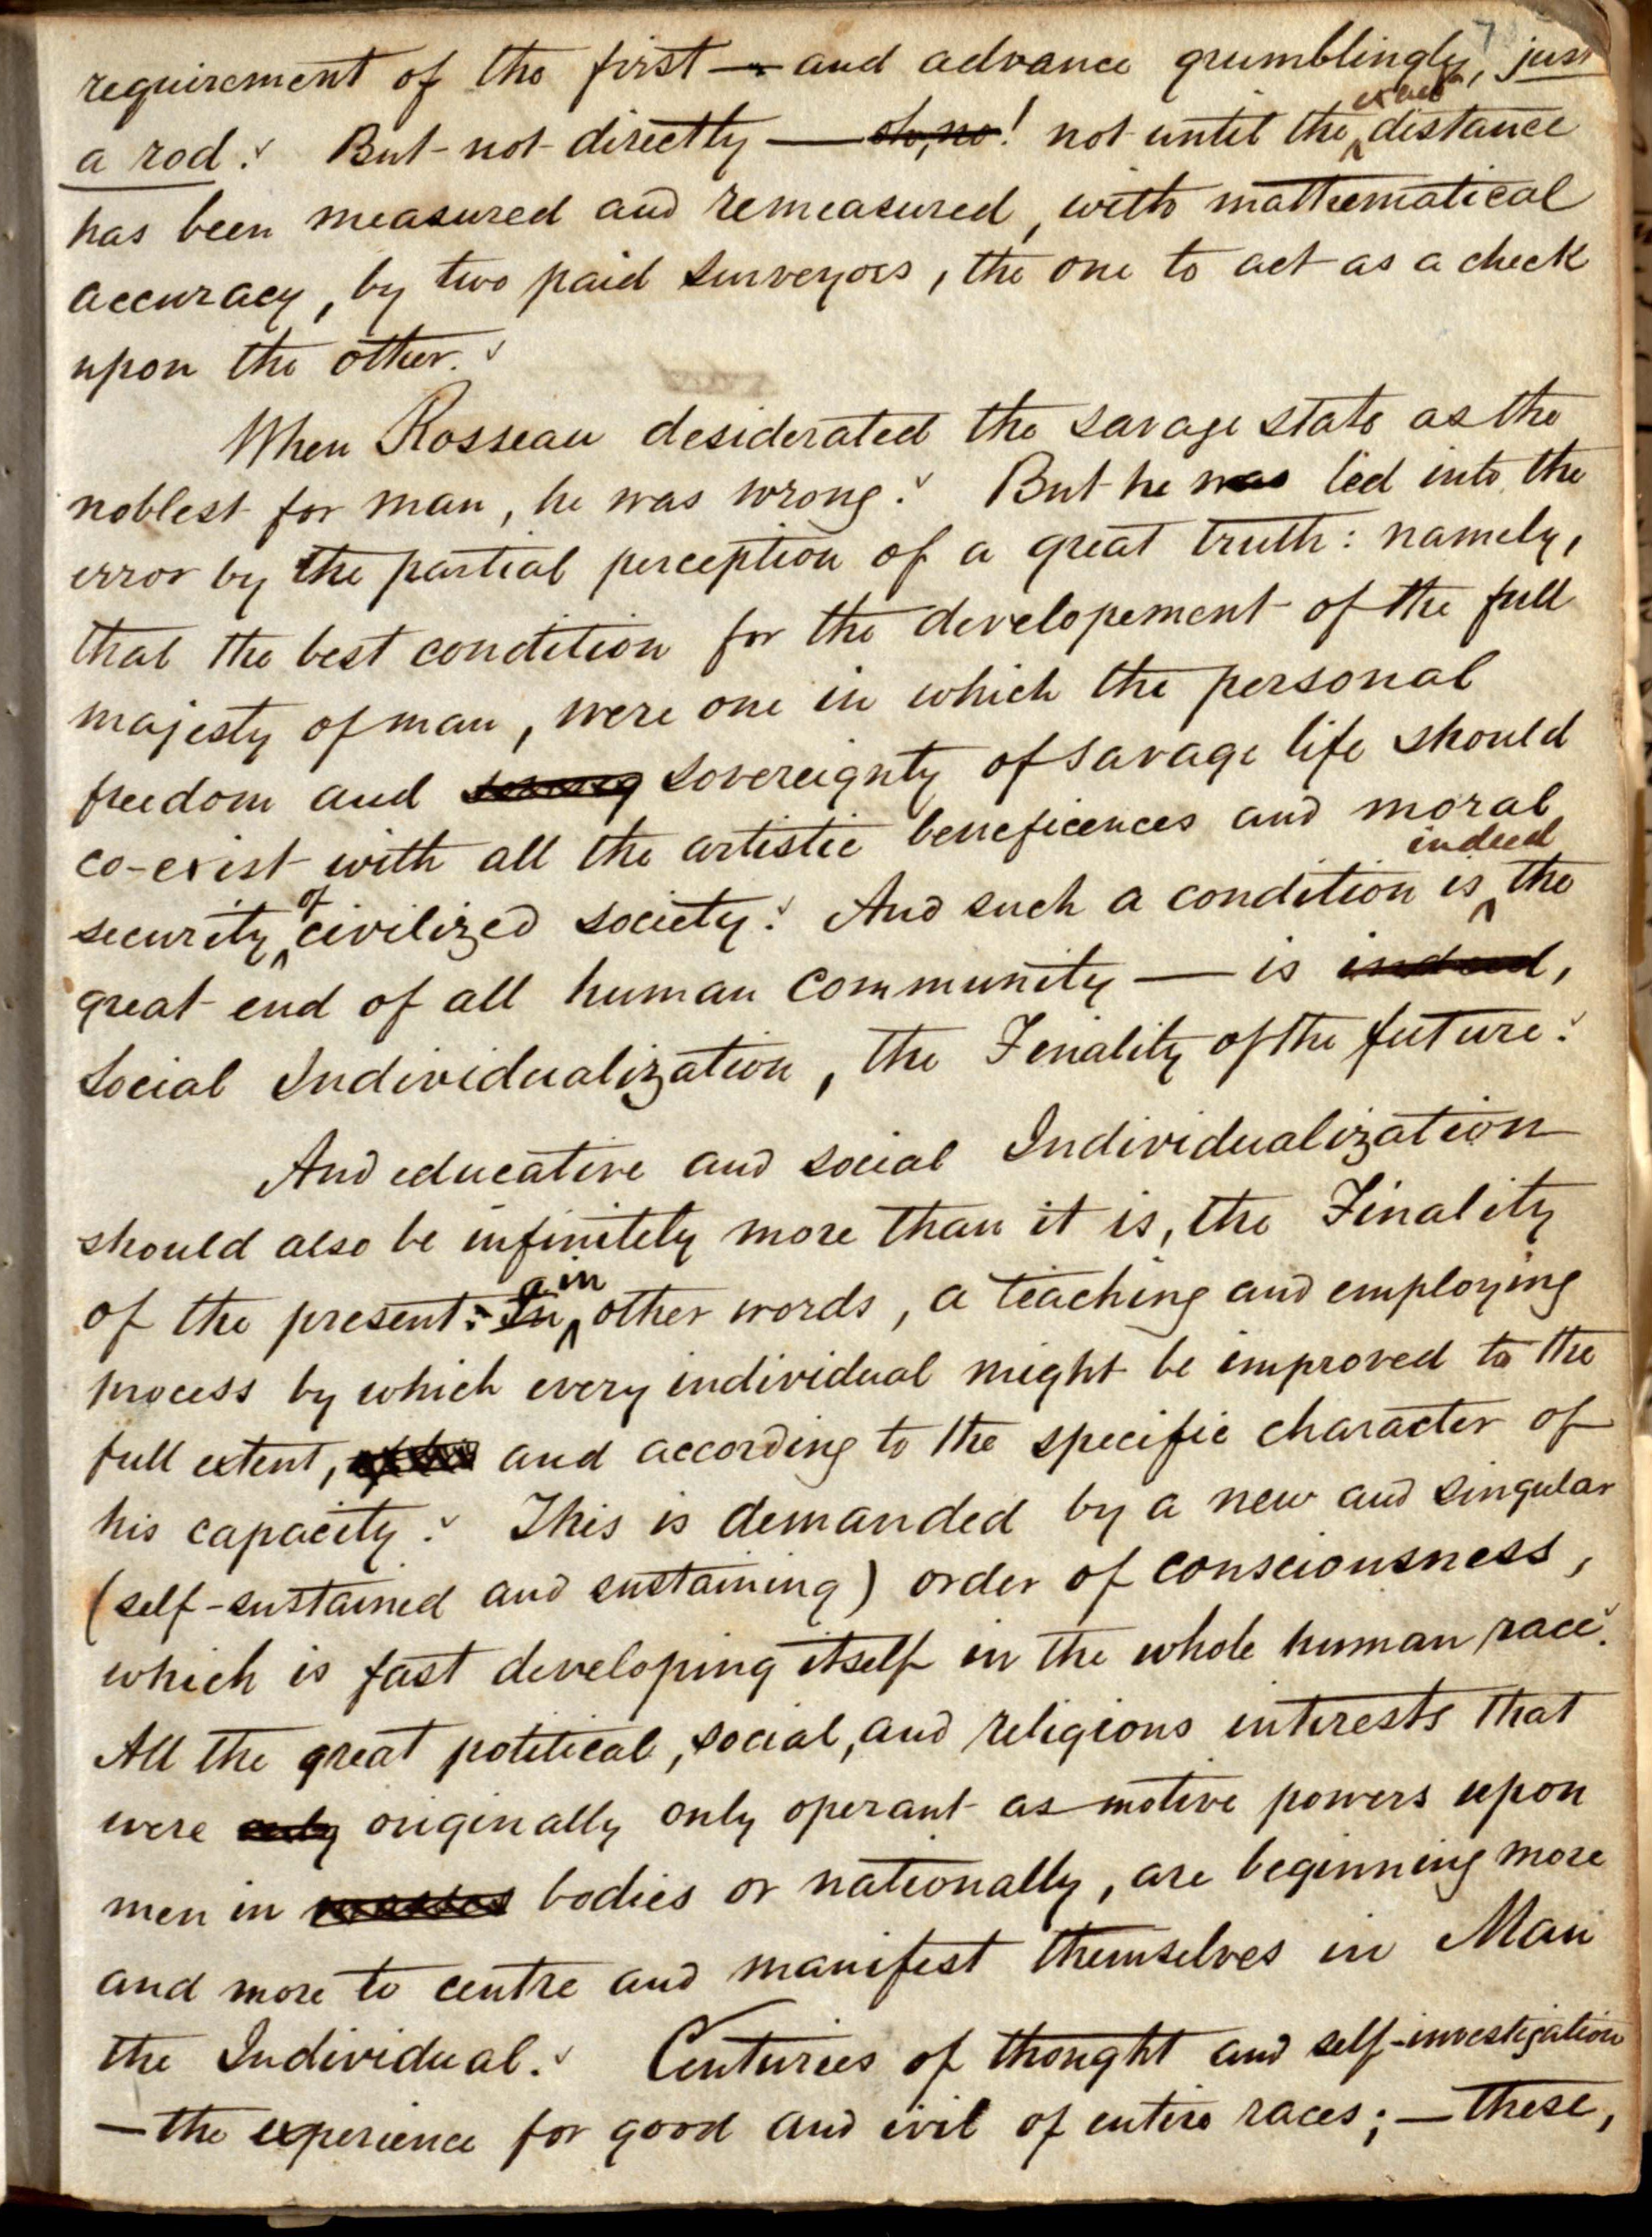 requirement of the first — and advance grumblingly, just
a rod. But not directly — oh, no! not until the exact distance
has been measured and remeasured, with mathematical
accuracy, by two paid surveyors, the one to act as a check
upon the other.
When Rosseau desiderated the savage state as the
noblest for man, he was wrong. But he was led into the
error by the partial perception of a great truth: namely,
that the best condition for the developement of the full
majesty of man, were one in which the personal
freedom and sovereignty of savage life should
co-exist with all the artistic beneficences and moral
security of civilized society. And such a condition is indeed the
great end of all human community — is indeed,
Social Individualization, the Finality of the future.
And educative and social Individualization
should also be infinitely more than it is, the Finality
of the present: In in other words, a teaching and employing
process by which every individual might be improved to the
full extent, and according to the specific character of
his capacity. This is demanded by a new and singular
(self-sustained and sustaining) order of consciousness,
which is fast developing itself in the whole human race.
All the great political, social, and religious interests that
were only originally only operant as motive powers upon
men in masses bodies or nationally, are beginning more
and more to centre and manifest themselves in Man
the Individual. Centuries of thought and self-investigation
— the experience for good and evil of entire races; — these,